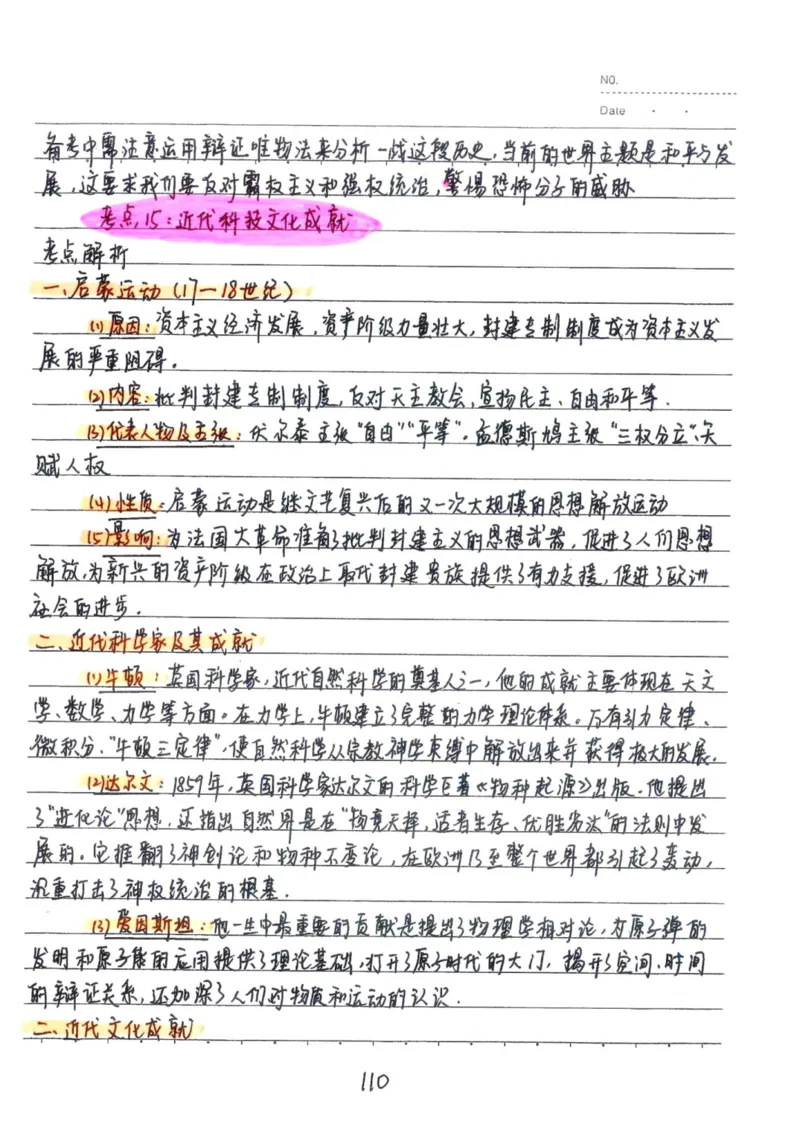 NO.
Date
备考中需注意运用辩证唯物法来分析一战这段历史,当前的世界主题是和平与发
展,这要求我们要反对霸权主义和强权统治,警惕恐怖分子的威胁
考点15:近代科技文化成就
考点解析
一、启蒙运动(17—18世纪)
(1)原因:资本主义经济发展,资产阶级力量壮大,封建专制制度成为资本主义发
展的严重阻碍。
(2)内容:批判封建专制制度,反对天主教会,宣扬民主、自由和平等.
(3)代表人物及主张:伏尔泰主张“自由”“平等”。孟德斯鸠主张“三权分立”、天
赋人权
(4)性质:启蒙运动是继文艺复兴后的又一次大规模的思想解放运动
(5)影响:为法国大革命准备了批判封建主义的思想武器,促进了人们思想
解放,为新兴的资产阶级在政治上取代封建贵族提供了有力支援,促进了欧洲
社会的进步.
二、近代科学家及其成就
(1)牛顿:英国科学家,近代自然科学的奠基人之一,他的成就主要体现在天文
学、数学、力学等方面。在力学上,牛顿建立了完整的力学理论体系。万有引力定律、
微积分、“牛顿三定律”,使自然科学从宗教神学束缚中解放出来并获得极大的发展.
(2)达尔文:1859年,英国科学家达尔文的科学巨著《物种起源》出版.他提出
了“进化论”思想,还指出自然界是在“物竞天择,适者生存、优胜劣汰”的法则中发
展的.它推翻了神创论和物种不变论,在欧洲乃至整个世界都引起了轰动,
沉重打击了神权统治的根基.
(3)爱因斯坦:他一生中最重要的贡献是提出了物理学相对论,为原子弹的
发明和原子能的应用提供了理论基础,打开了原子时代的大门,揭开了空间、时间
的辩证关系,还加深了人们对物质和运动的认识.
二、近代文化成就
110